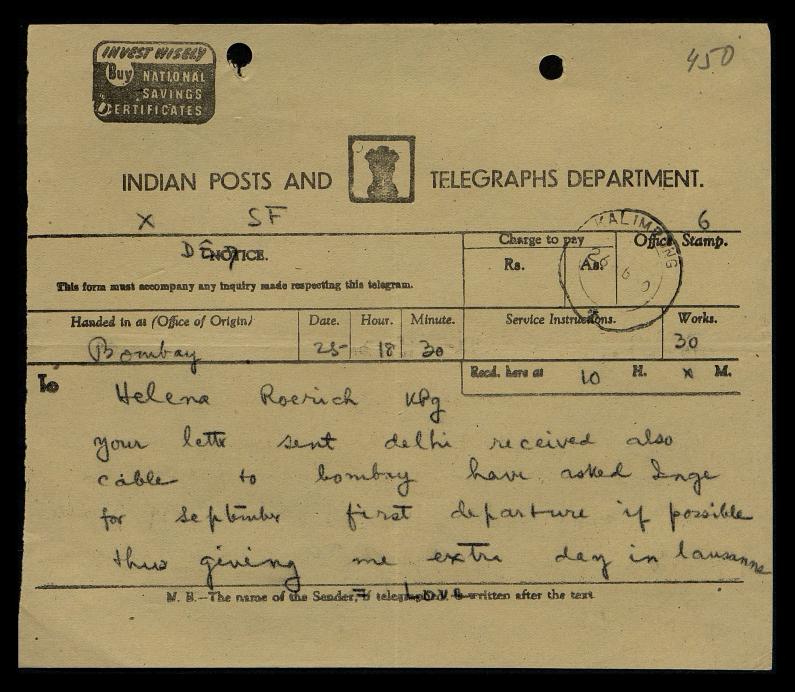 INVEST WISELY
Buy NATIONAL
SAVINGS
CERTIFICATES
450
INDIAN POSTS AND TELEGRAPHS DEPARTMENT.
X SF 6
NOTICE.
Charge to pay
Office Stamp.
Rs. As.
KALIMPONG
This form must accompany any inquiry made respecting this telegram.
Handed in at (Office of Origin) Date. Hour. Minute. Service Instructions. Works.
Bombay 25 18 30 30
To
Recd. here at 10 H. x M.
Helena Roerich KPg
your lettr sent delhi received also
cable to bombay have asked Inge
for september first departure if possible
thus giving me extra day in lausanne
N. B.—The name of the Sender, if telegraphed, is written after the text